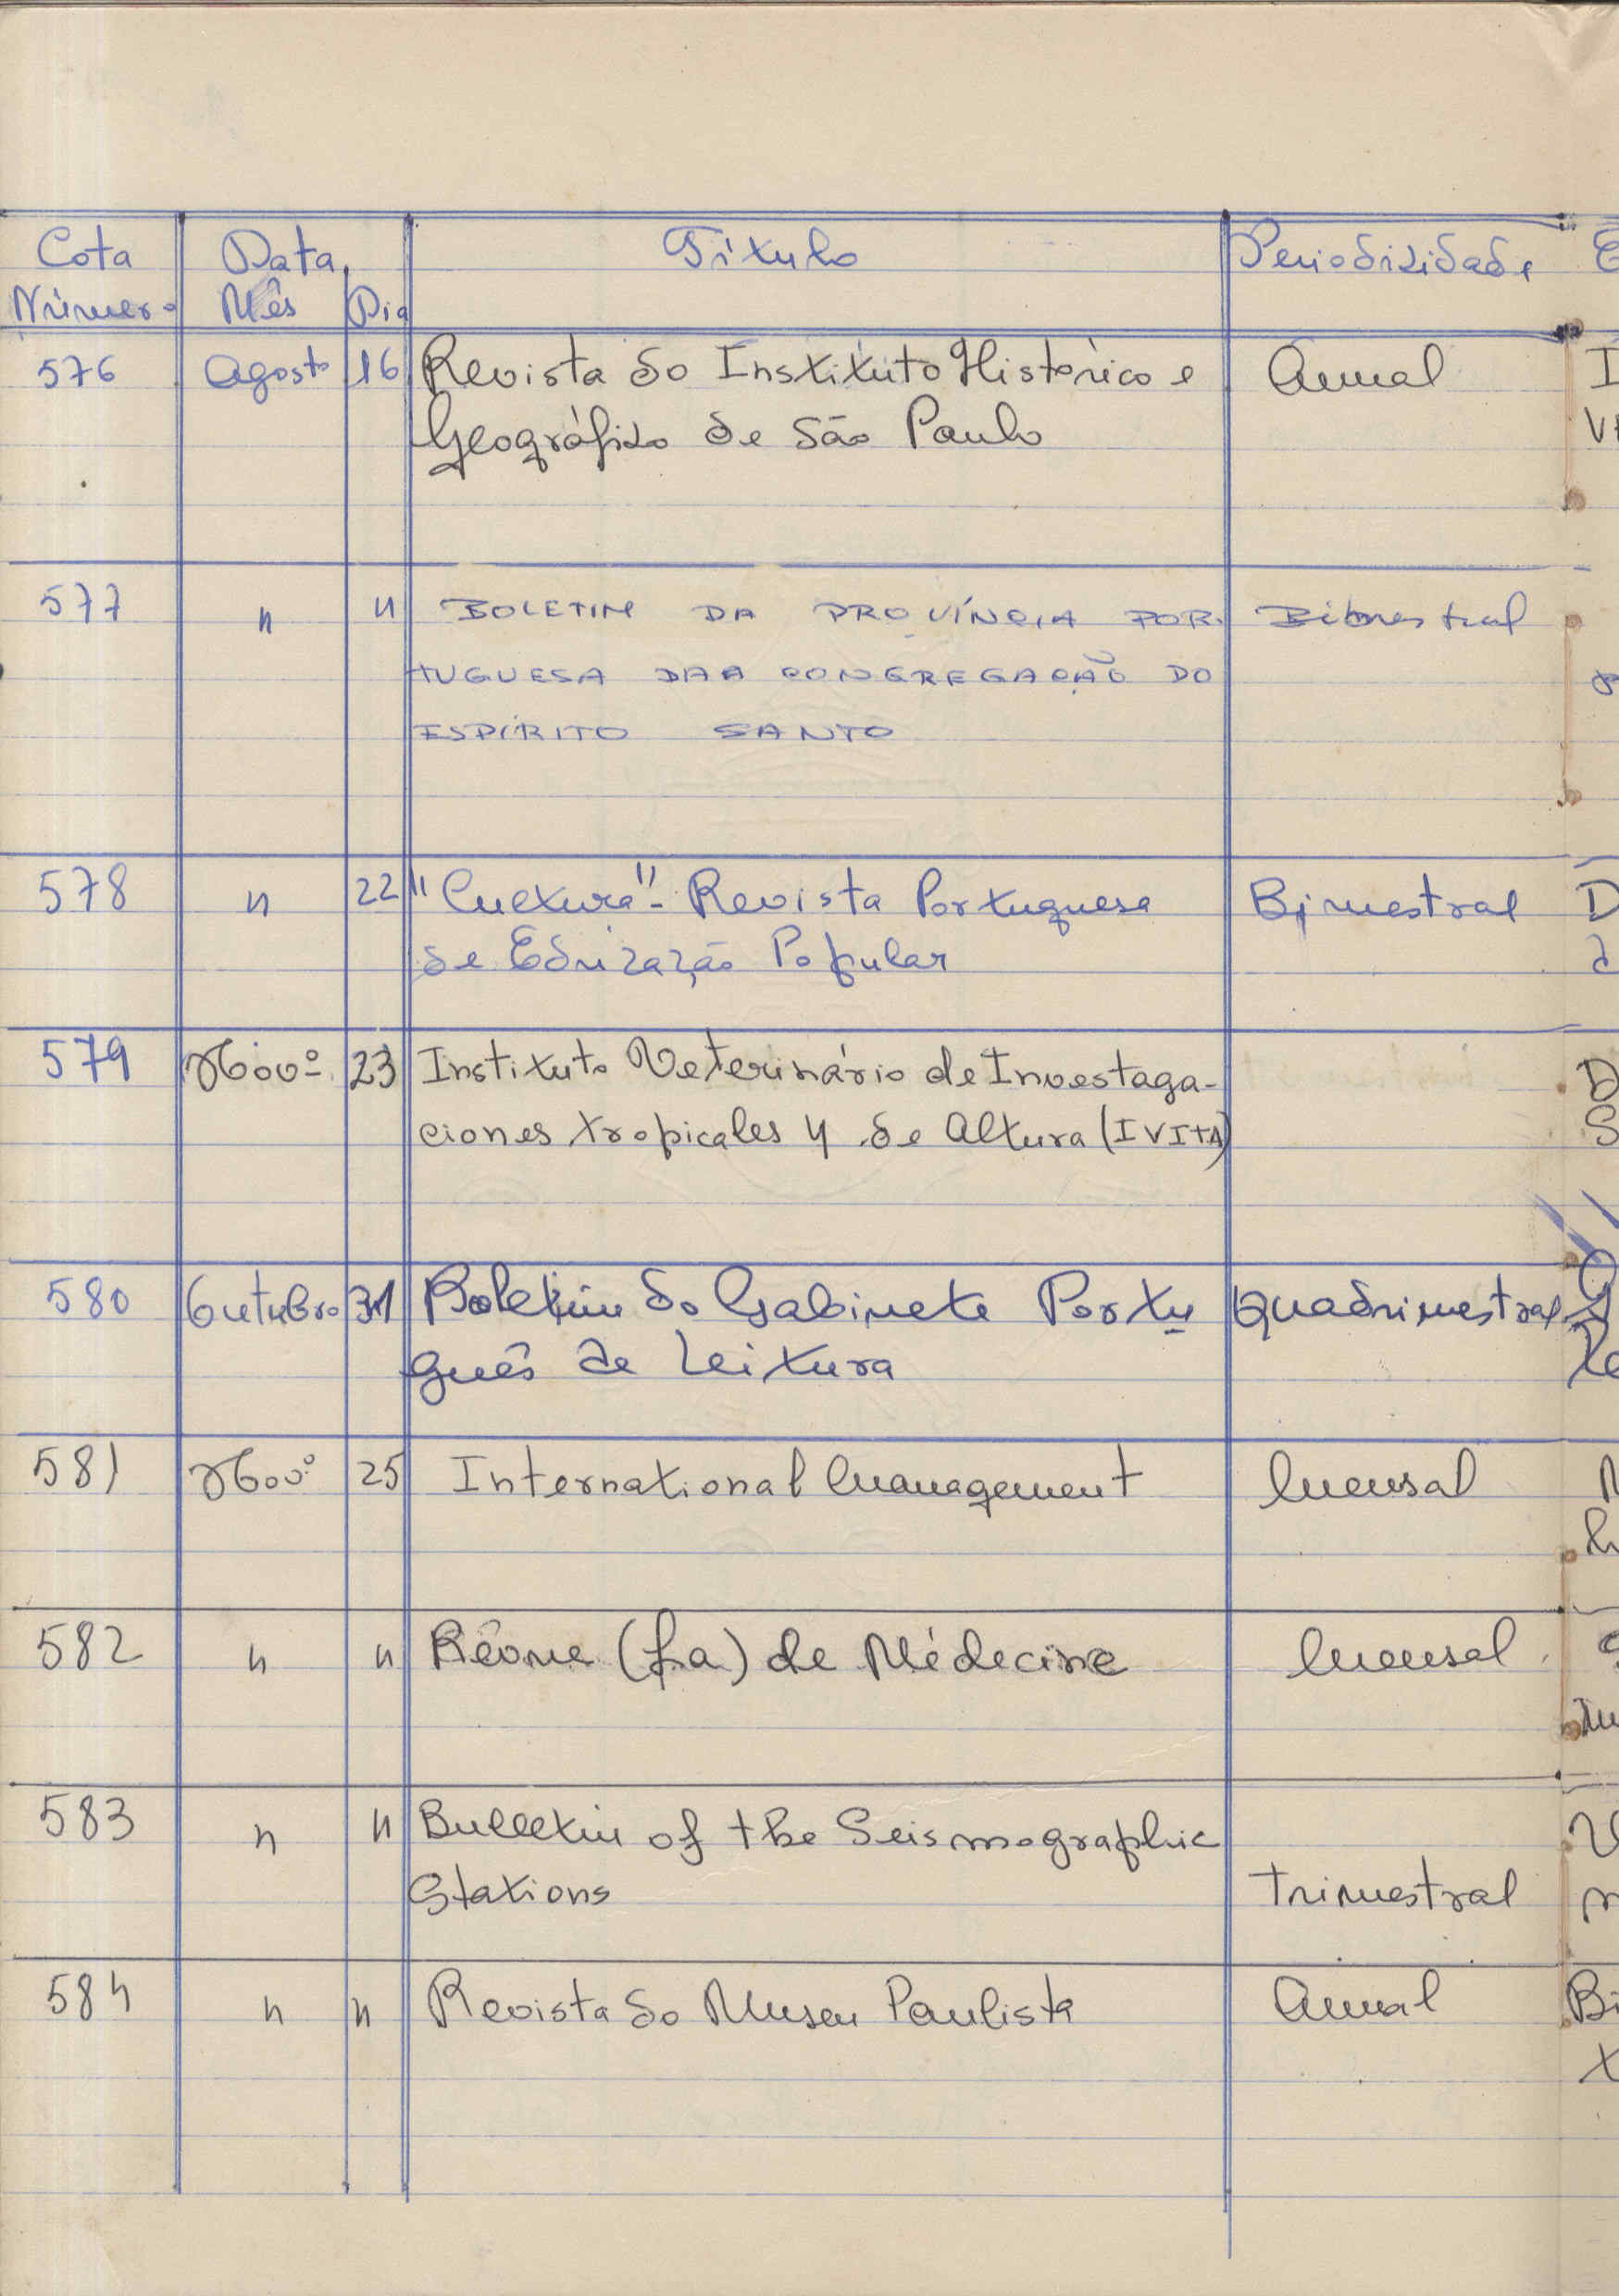 Cota Data Título Periodicidade
Número Mês Dia
576 Agosto 16 Revista do Instituto Histórico e Anual
Geográfico de São Paulo
577 " " BOLETIM DA PROVÍNCIA POR- Bimestral
TUGUESA DAA CONGREGAÇÃO DO
ESPÍRITO SANTO
578 " 22 "Cultura" - Revista Portuguesa Bimestral
de Educação Popular
579 Novº 23 Instituto Veterinário de Investaga-
ciones tropicales y de Altura (IVITA)
580 Outubro 31 Boletim do Gabinete Portu Quadrimestral
guês de Leitura
581 Novº 25 International Management Mensal
582 " " Rêvue (La) de Médecine Mensal
583 " " Bulletin of the Seismographic
Stations Trimestral
584 " " Revista do Museu Paulista Anual